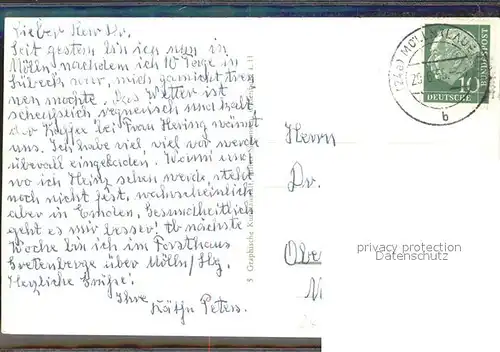 Lieber Herr Dr.
Seit gestern bin ich nun in
Mölln, nachdem ich 10 Tage in
Lübeck war, mich garnicht tren
nen mochte. Das Wetter ist
scheusslich, regnerisch und kalt,
der Kaffee bei Frau Hering wärmt
uns. Ich habe viel, viel vor, werde
überall eingeladen. Wann und
wo ich Heinz sehen werde, steht
noch nicht fest, wahrscheinlich
aber in Emden. Gesundheitlich
geht es mir besser! Ab nächste
Woche bin ich im Forsthaus
über Mölln/Lbg.
Herzliche Grüße!
Ihre
Käthe Peters.
5 Graphische
(24a) MÖLLN
b
10
DEUTSCHE
BUNDESPOST
Herrn
Dr.
Obe
privacy protection
Datenschutz